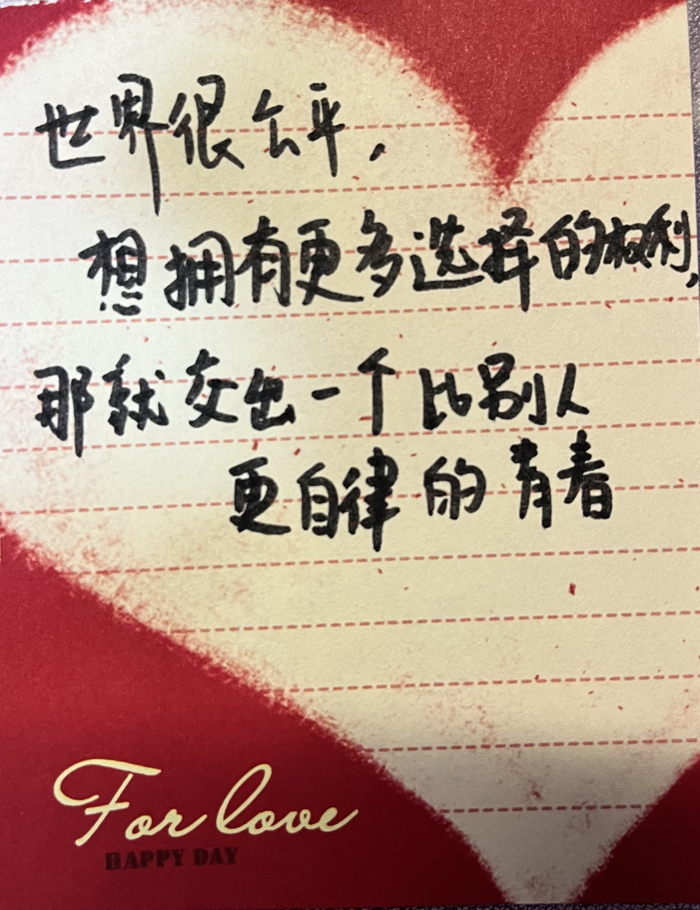 世界很公平，
想拥有更多选择的权利，
那就交出一个比别人
更自律的青春
For love
HAPPY DAY